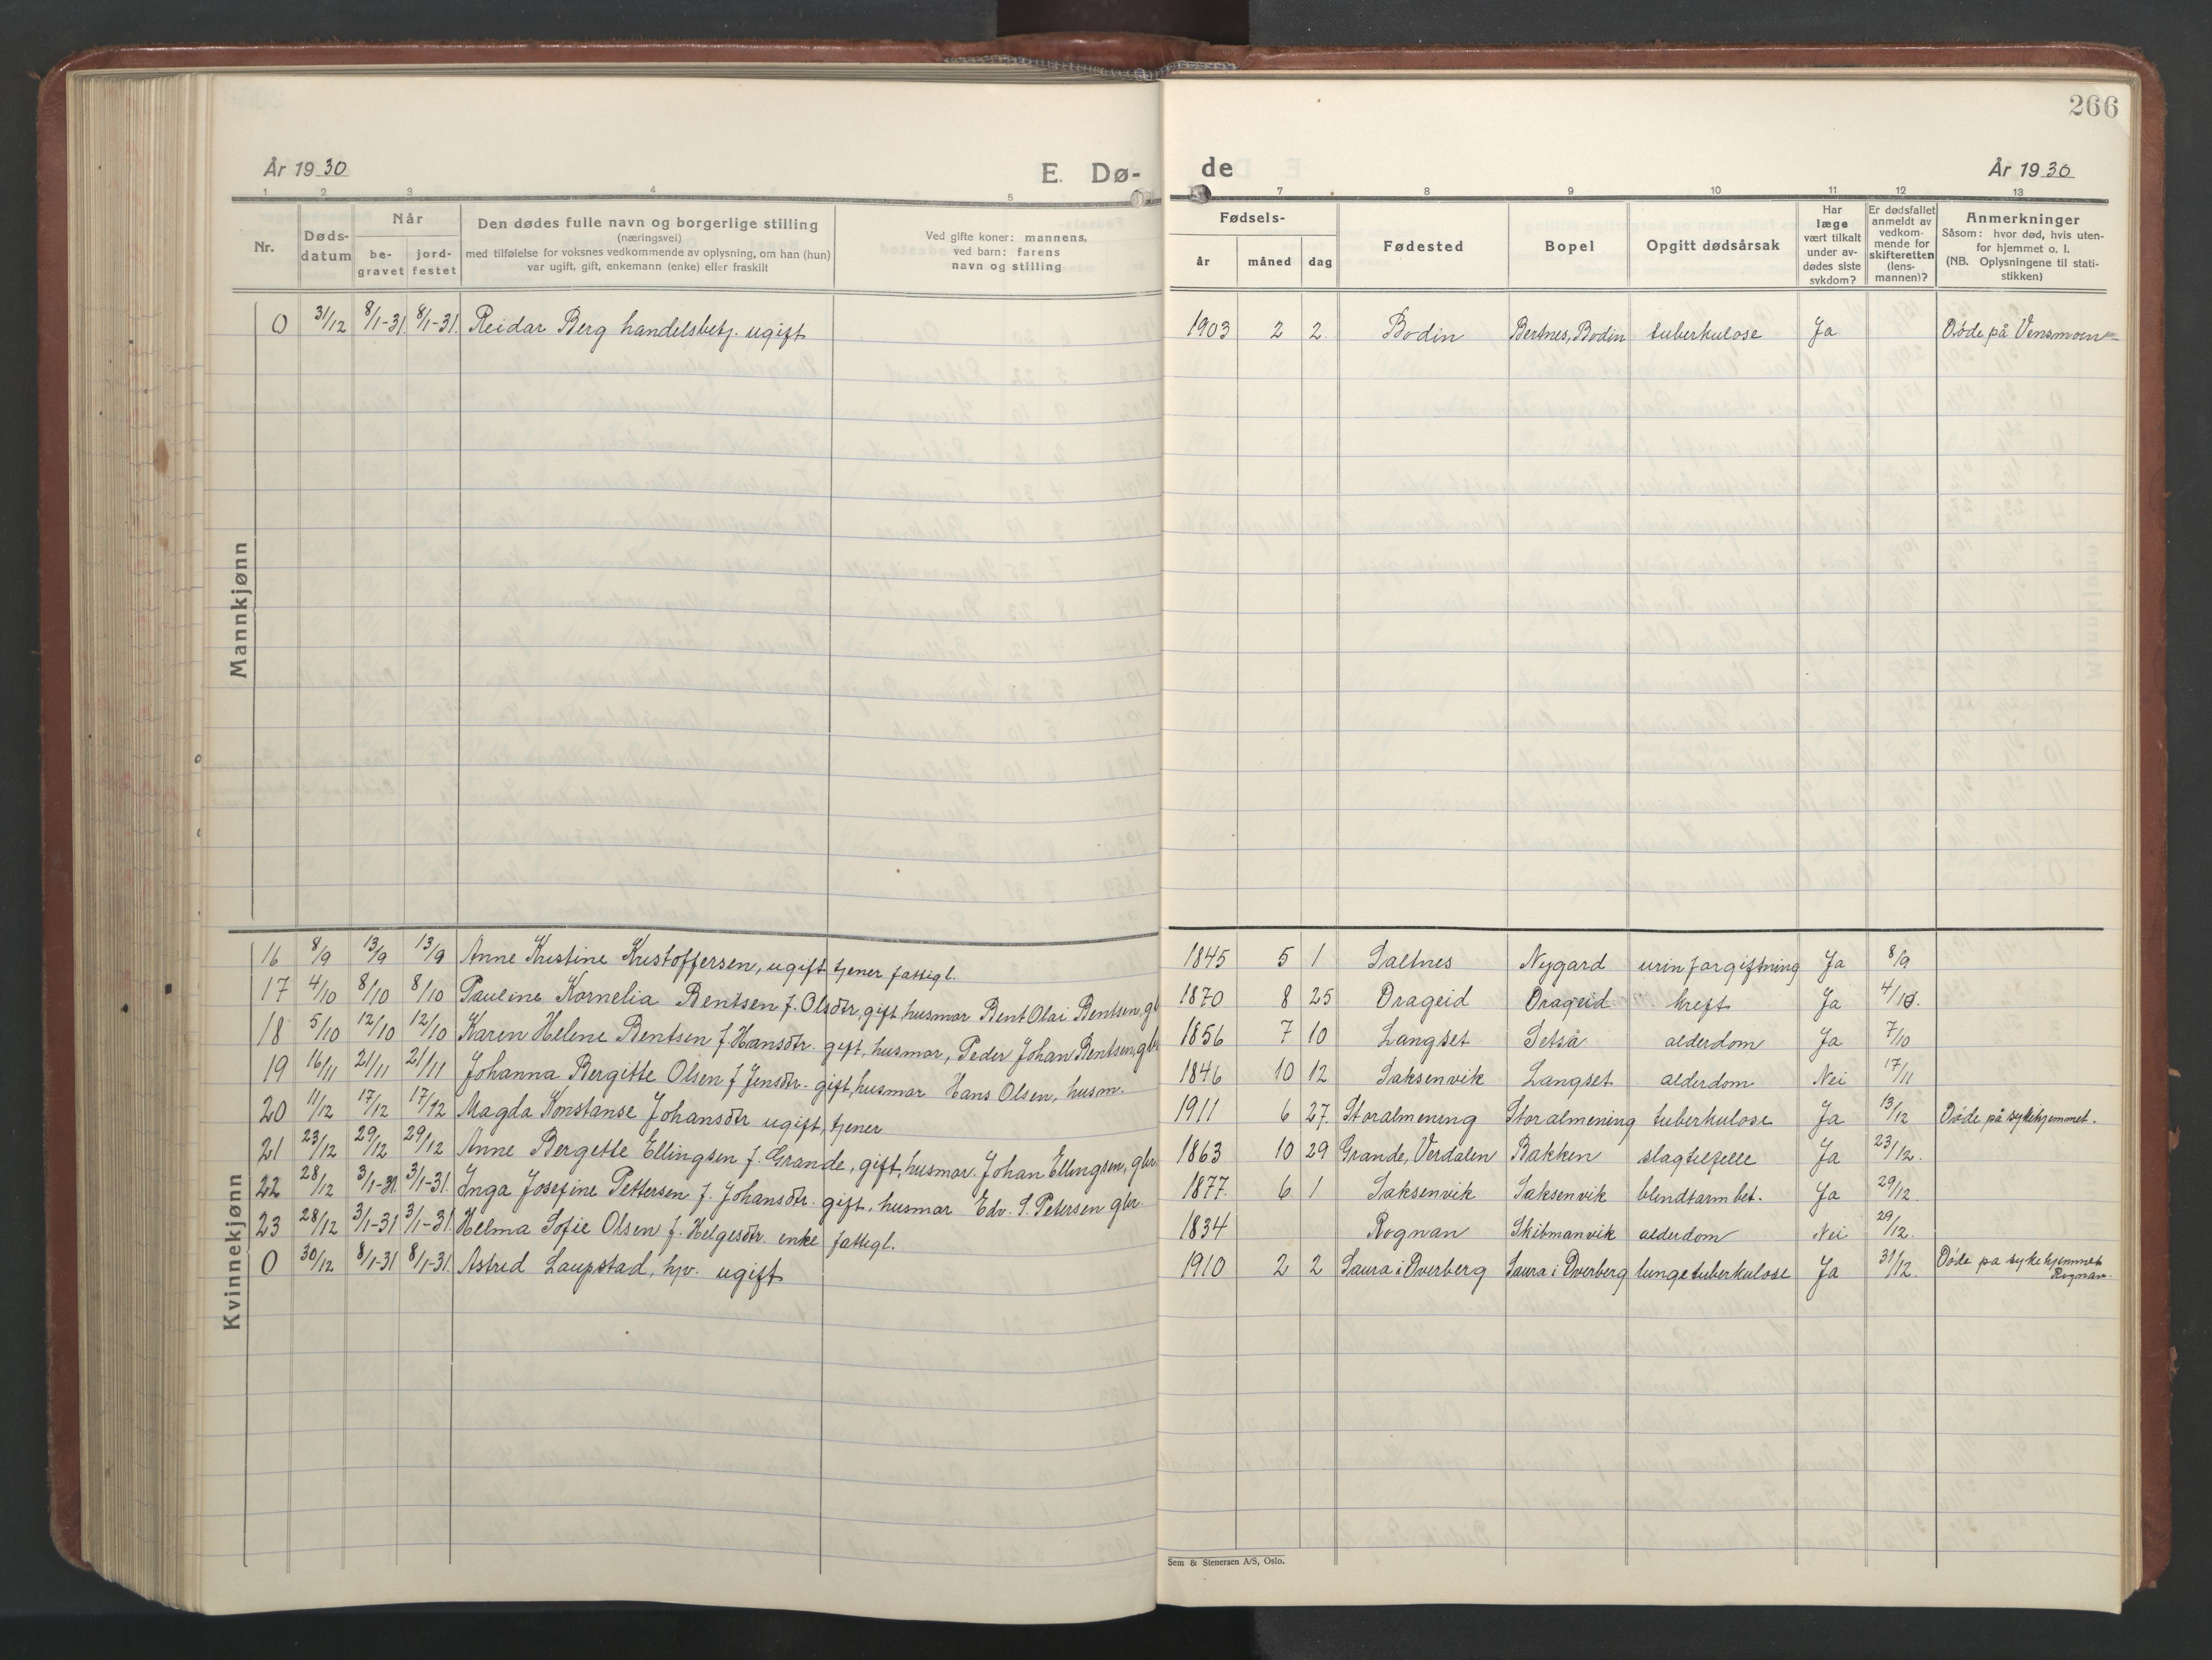 266
År 1930
E. Dø-
de
År 1930
1 2 3 4 5 7 8 9 10 11 12 13
Nr.
Døds-
datum
Når
be-
gravet
jord-
festet
Den dødes fulle navn og borgerlige stilling
(næringsvei)
med tilføielse for voksnes vedkommende av oplysning, om han (hun)
var ugift, gift, enkemann (enke) eller fraskilt
Ved gifte koner: mannens,
ved barn: farens
navn og stilling
Fødsels-
år måned dag
Fødested
Bopel
Opgitt dødsårsak
Har
læge
vært tilkalt
under av-
dødes siste
sykdom?
Er dødsfallet
anmeldt av
vedkom-
mende for
skifteretten
(lens-
mannen)?
Anmerkninger
Såsom: hvor død, hvis uten-
for hjemmet o. l.
(NB. Oplysningene til stati-
stikken)
Mannkjønn
0 31/12 8/1-31 8/1-31. Reidar Berg handelsbetj. ugift 1903 2 2. Bodin Bertnes, Bodin tuberkulose Ja Døde på Vensmoen
Kvinnekjønn
16 8/9 13/9 13/9 Anne Kristine Kristoffersen, ugift tjener fattigl. 1845 5 1 Saltnes Nygard urinforgiftning Ja 8/9
17 4/10 8/10 8/10 Pauline Kornelia Bentsen f. Olsdtr, gift, husmor Bent Olai Bentsen, gb 1870 8 25 Drageid Drageid kreft Ja 4/10.
18 5/10 12/10 12/10 Karen Helene Bentsen f. Hansdtr. gift, husmor, Peder Johan Bentsen, gbr 1856 7 10 Langset Setså alderdom Ja 7/10
19 16/11 21/11 21/11 Johanna Bergitte Olsen f Jensdtr. gift, husmor Hans Olsen, husm. 1846 10 12 Saksenvik Langset alderdom Nei 17/11
20 11/12 17/12 17/12 Magda Konstanse Johansdtr ugift, tjener 1911 6 27. Storalmening Storalmening tuberkulose Ja 13/12 Døde på sykehjemmet.
21 23/12 29/12 29/12 Anne Bergette Ellingsen f. Grande, gift, husmor. Johan Ellingsen, gbr 1863 10 29 Grande, Verdalen Bakken slagtilfelle Ja 23/12.
22 28/12 3/1-31 3/1-31. Inga Josefine Pettersen f. Johansdtr. gift, husmor Edv. S. Petersen gbr. 1877. 6 1 Saksenvik Saksenvik blindtarmbet. Ja 29/12.
23 28/12 3/1-31 3/1-31. Helma Sofie Olsen f. Helgesdtr. enke fattigl. 1834 Rognan Skibmanvik alderdom Nei 29/12.
0 30/12 8/1-31 8/1-31. Astrid Laupstad, hjv. ugift 1910 2 2 Saura i Øverberg Saura i Øverberg lungetuberkulose Ja 31/12. Døde på sykehjemmet
Rognan.
Sem & Stenersen A/S, Oslo.